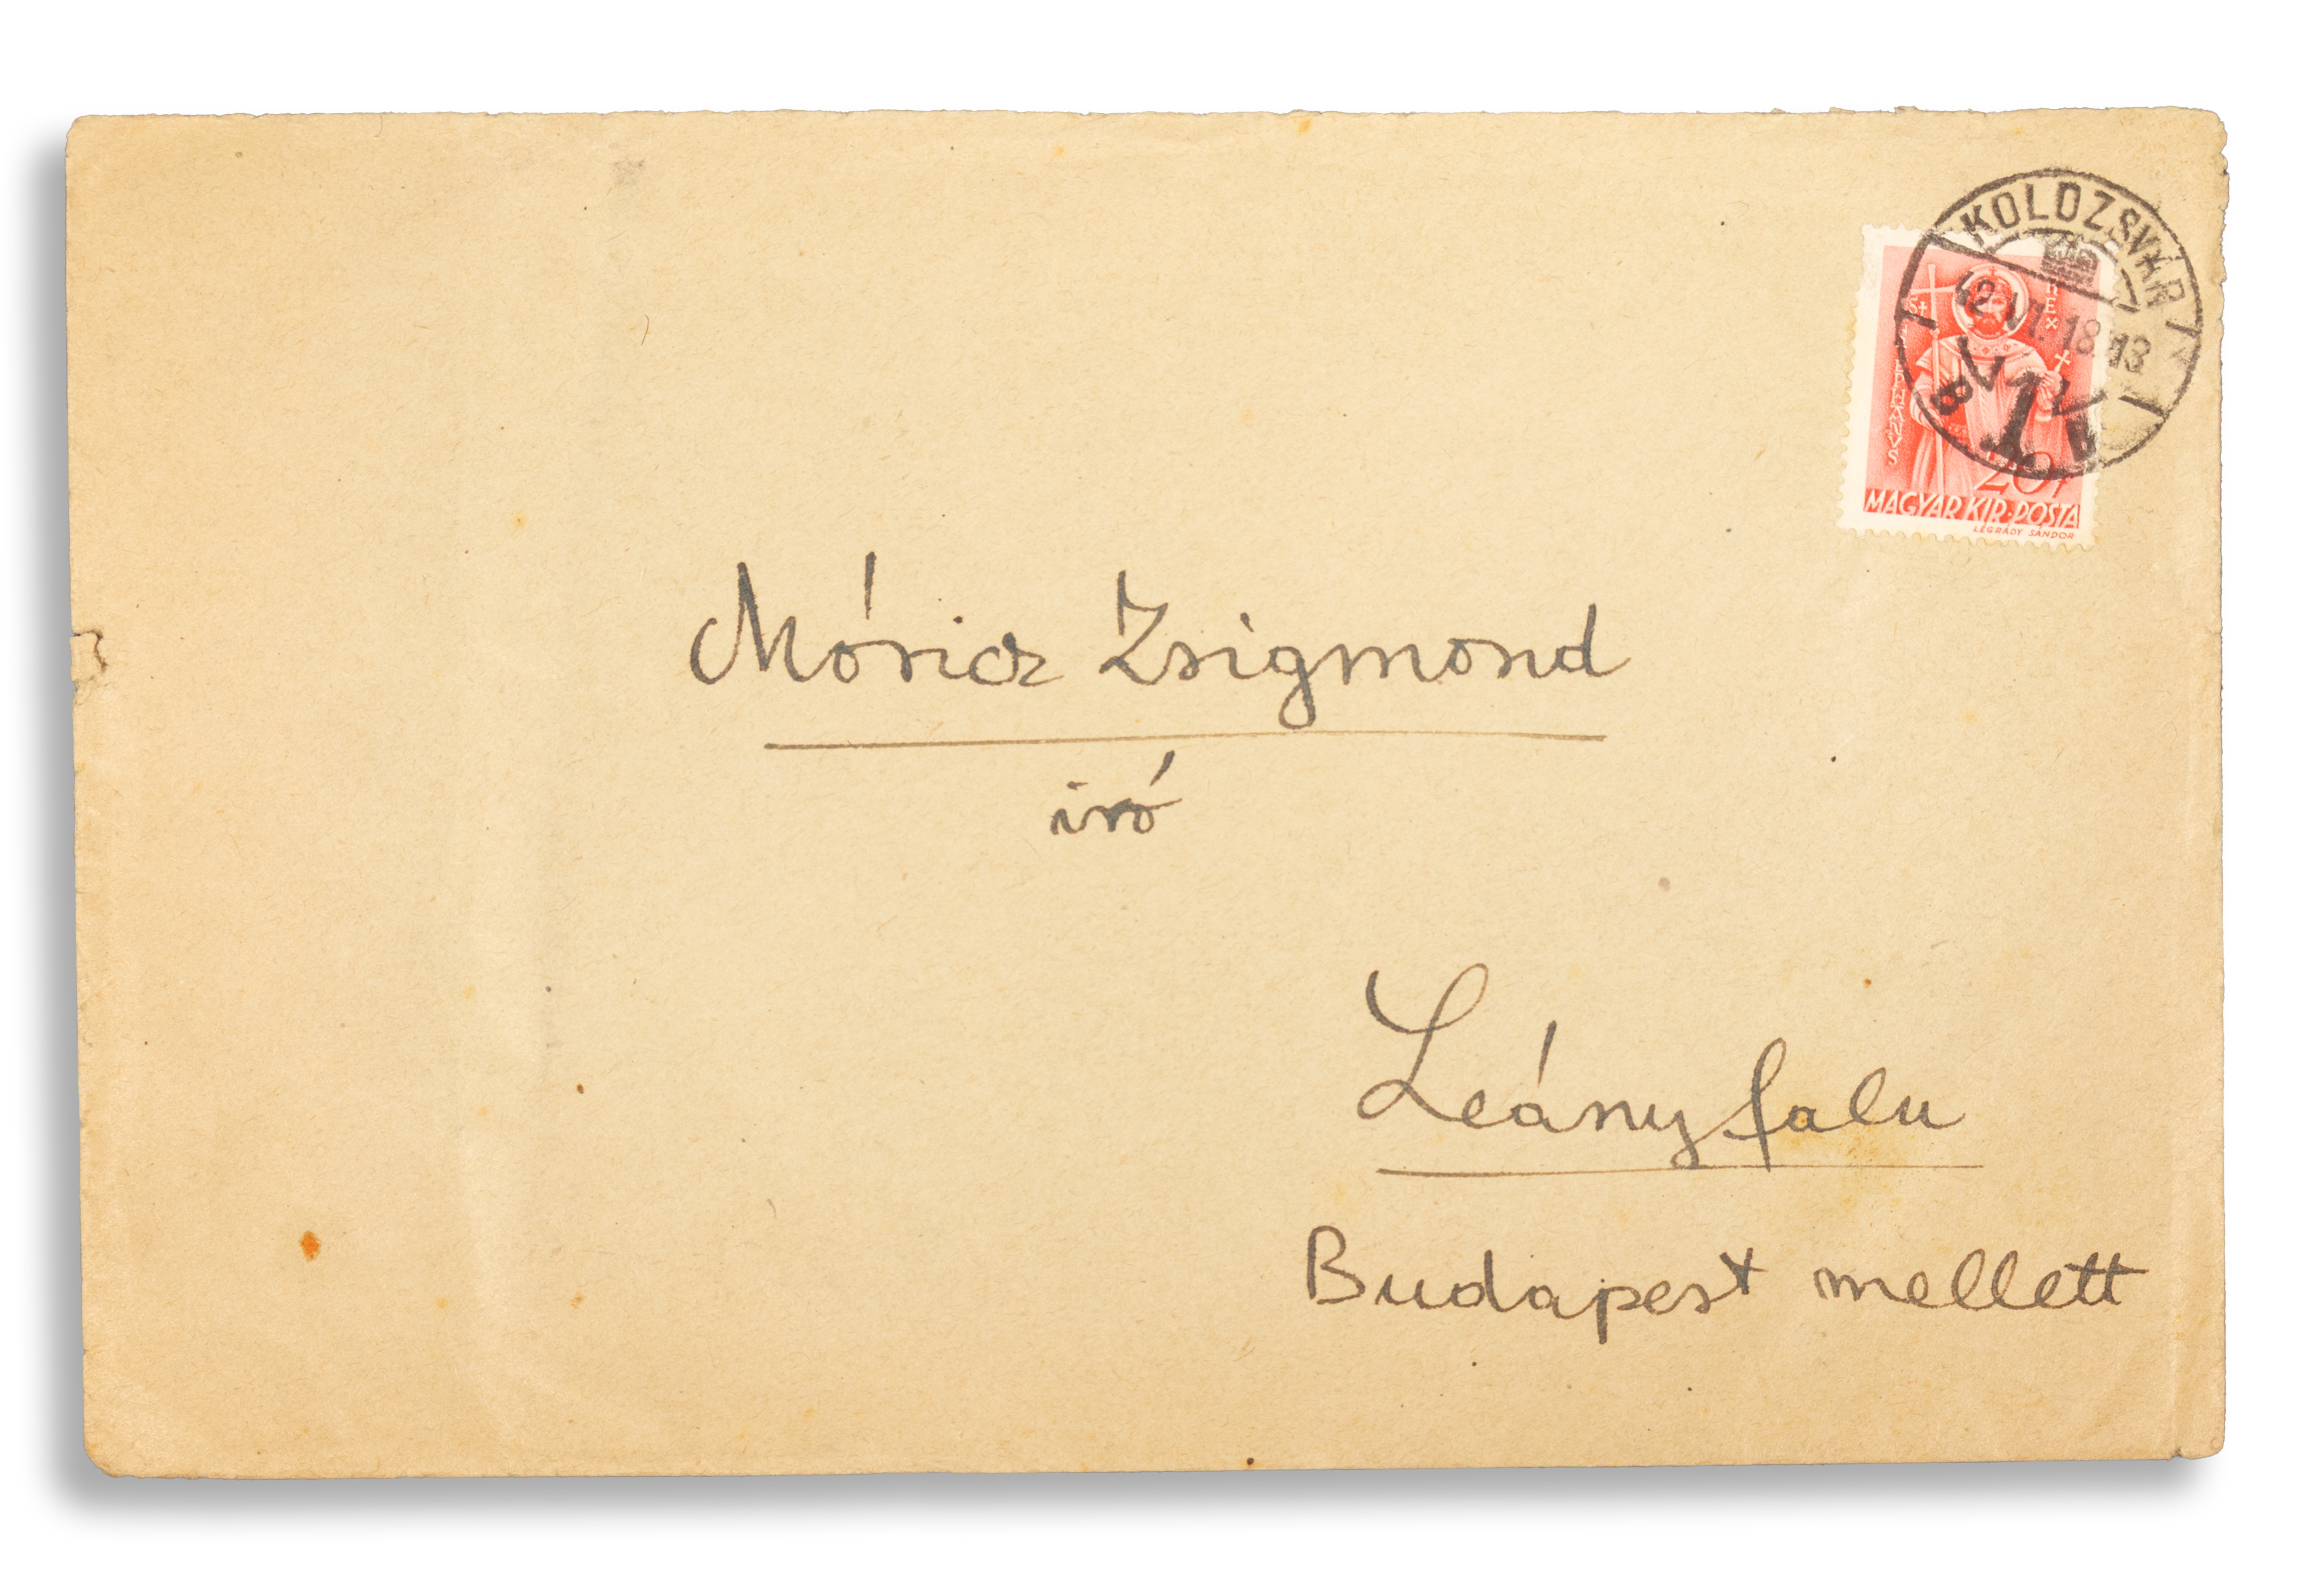 KOLOZSVÁR
42 VI. 18 13
B
St
REX
MAGYAR KIR·POSTA
LÉGRÁDY SÁNDOR
Móricz Zsigmond
író
Leányfalu
Budapest mellett